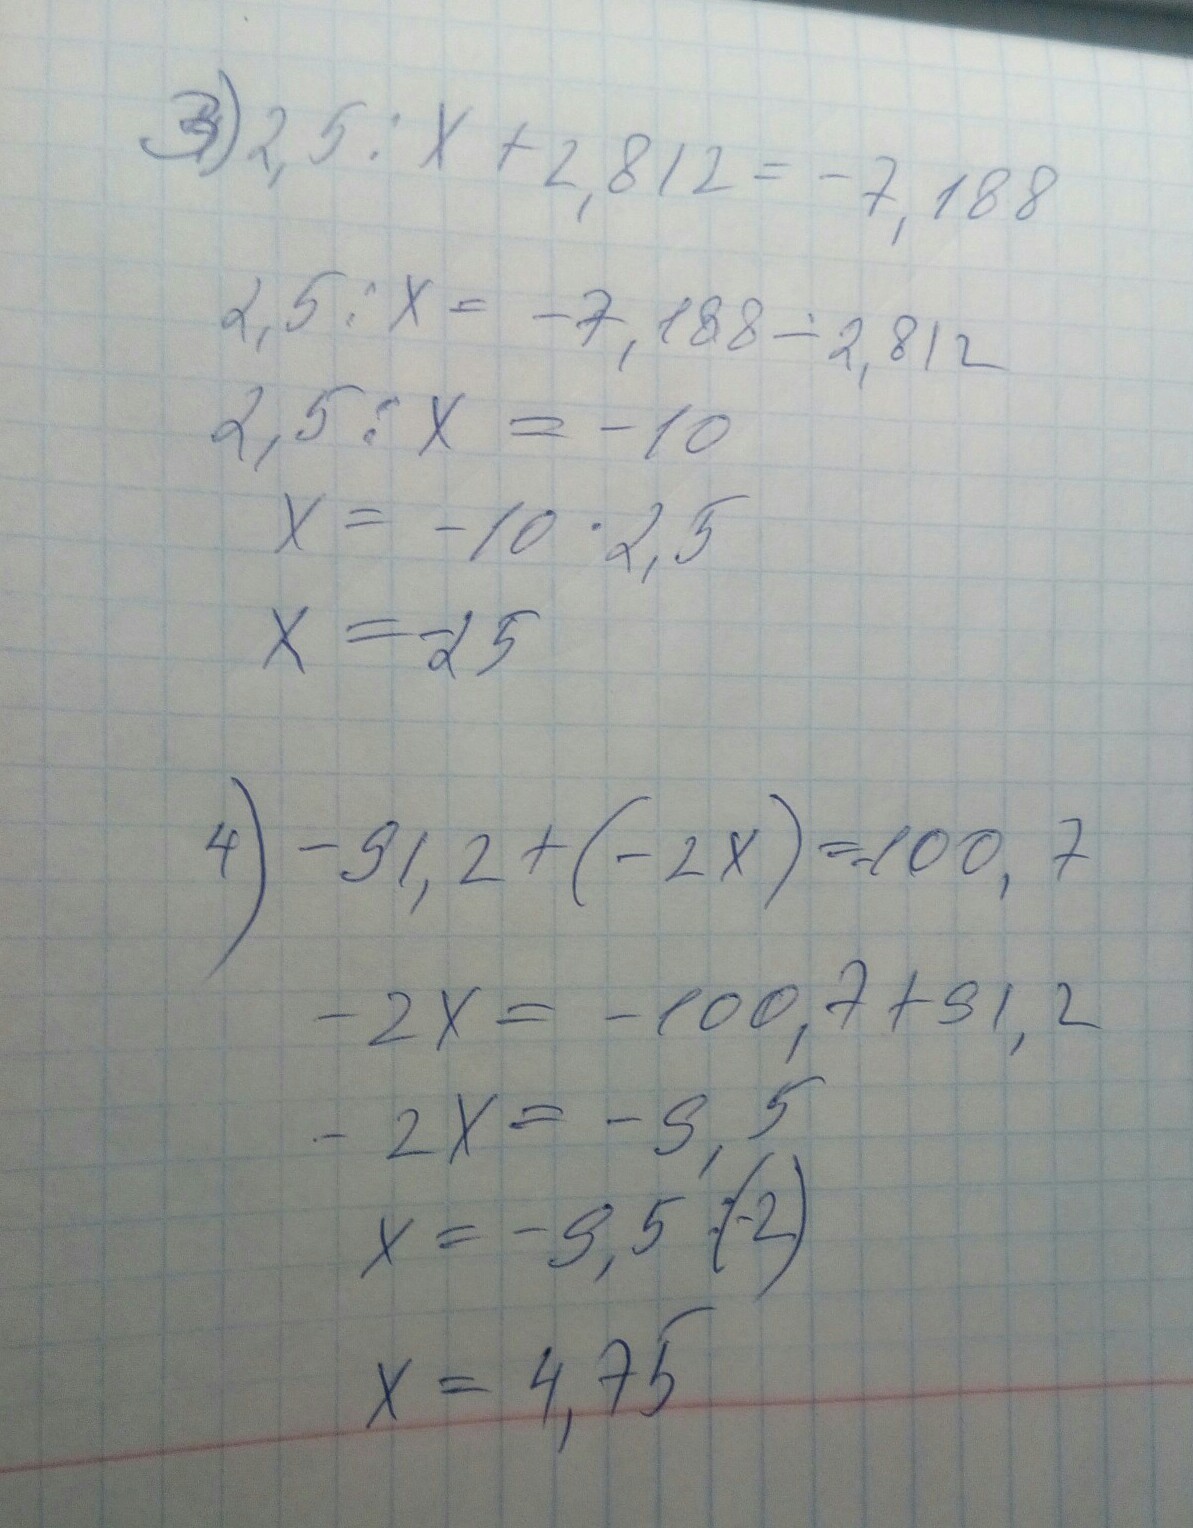 3) 2,5 : x + 2,812 = -7,188
2,5 : x = -7,188 - 2,812
2,5 : x = -10
x = -10 · 2,5
x = -25
4) -91,2 + (-2x) = -100,7
-2x = -100,7 + 91,2
-2x = -9,5
x = -9,5 : (-2)
x = 4,75